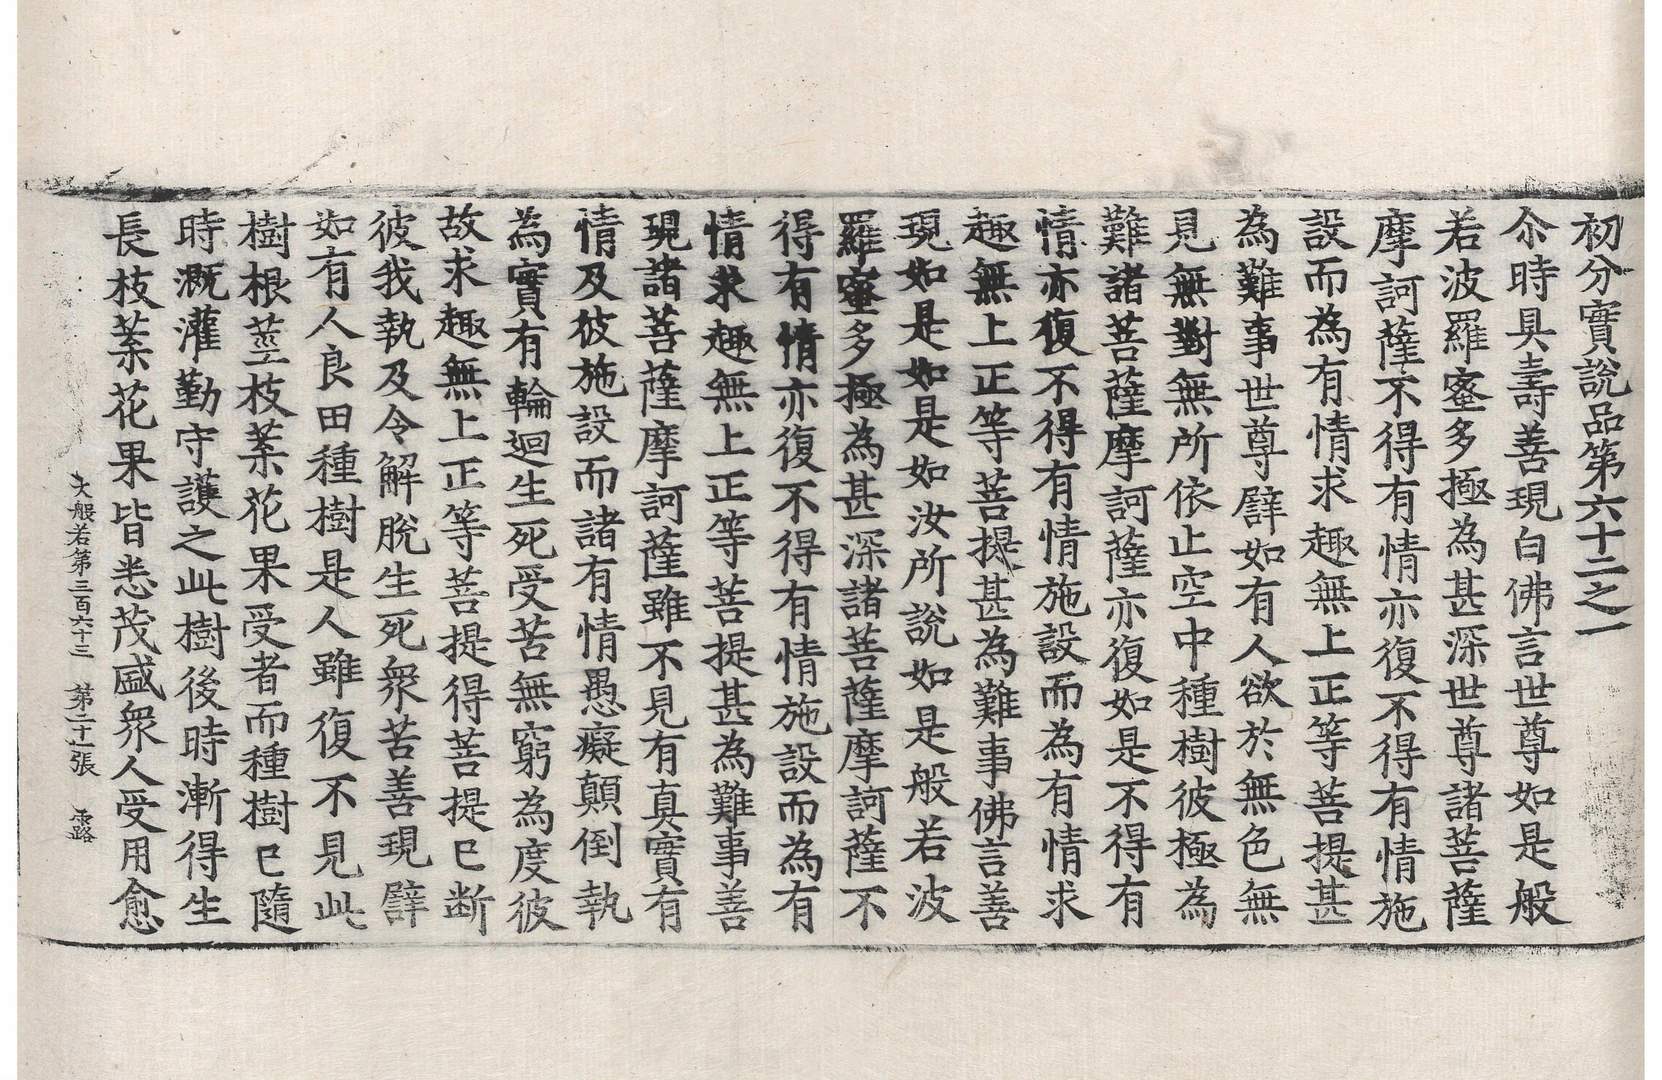 初分實說品第六十二之一
尒時具壽善現白佛言世尊如是般
若波羅蜜多極為甚深世尊諸菩薩
摩訶薩不得有情亦復不得有情施
設而為有情求趣無上正等菩提甚
為難事世尊譬如有人欲於無色無
見無對無所依止空中種樹彼極為
難諸菩薩摩訶薩亦復如是不得有
情亦復不得有情施設而為有情求
趣無上正等菩提甚為難事佛言善
現如是如是如汝所說如是般若波
羅蜜多極為甚深諸菩薩摩訶薩不
得有情亦復不得有情施設而為有
情求趣無上正等菩提甚為難事善
現諸菩薩摩訶薩雖不見有真實有
情及彼施設而諸有情愚癡顛倒執
為實有輪迴生死受苦無窮為度彼
故求趣無上正等菩提得菩提已断
彼我執及令解脫生死衆苦善現譬
如有人良田種樹是人雖復不見此
樹根莖枝葉花果受者而種樹已隨
時溉灌勤守護之此樹後時漸得生
長枝葉花果皆悉茂盛衆人受用愈
大般若第三百六十三 第二十一張